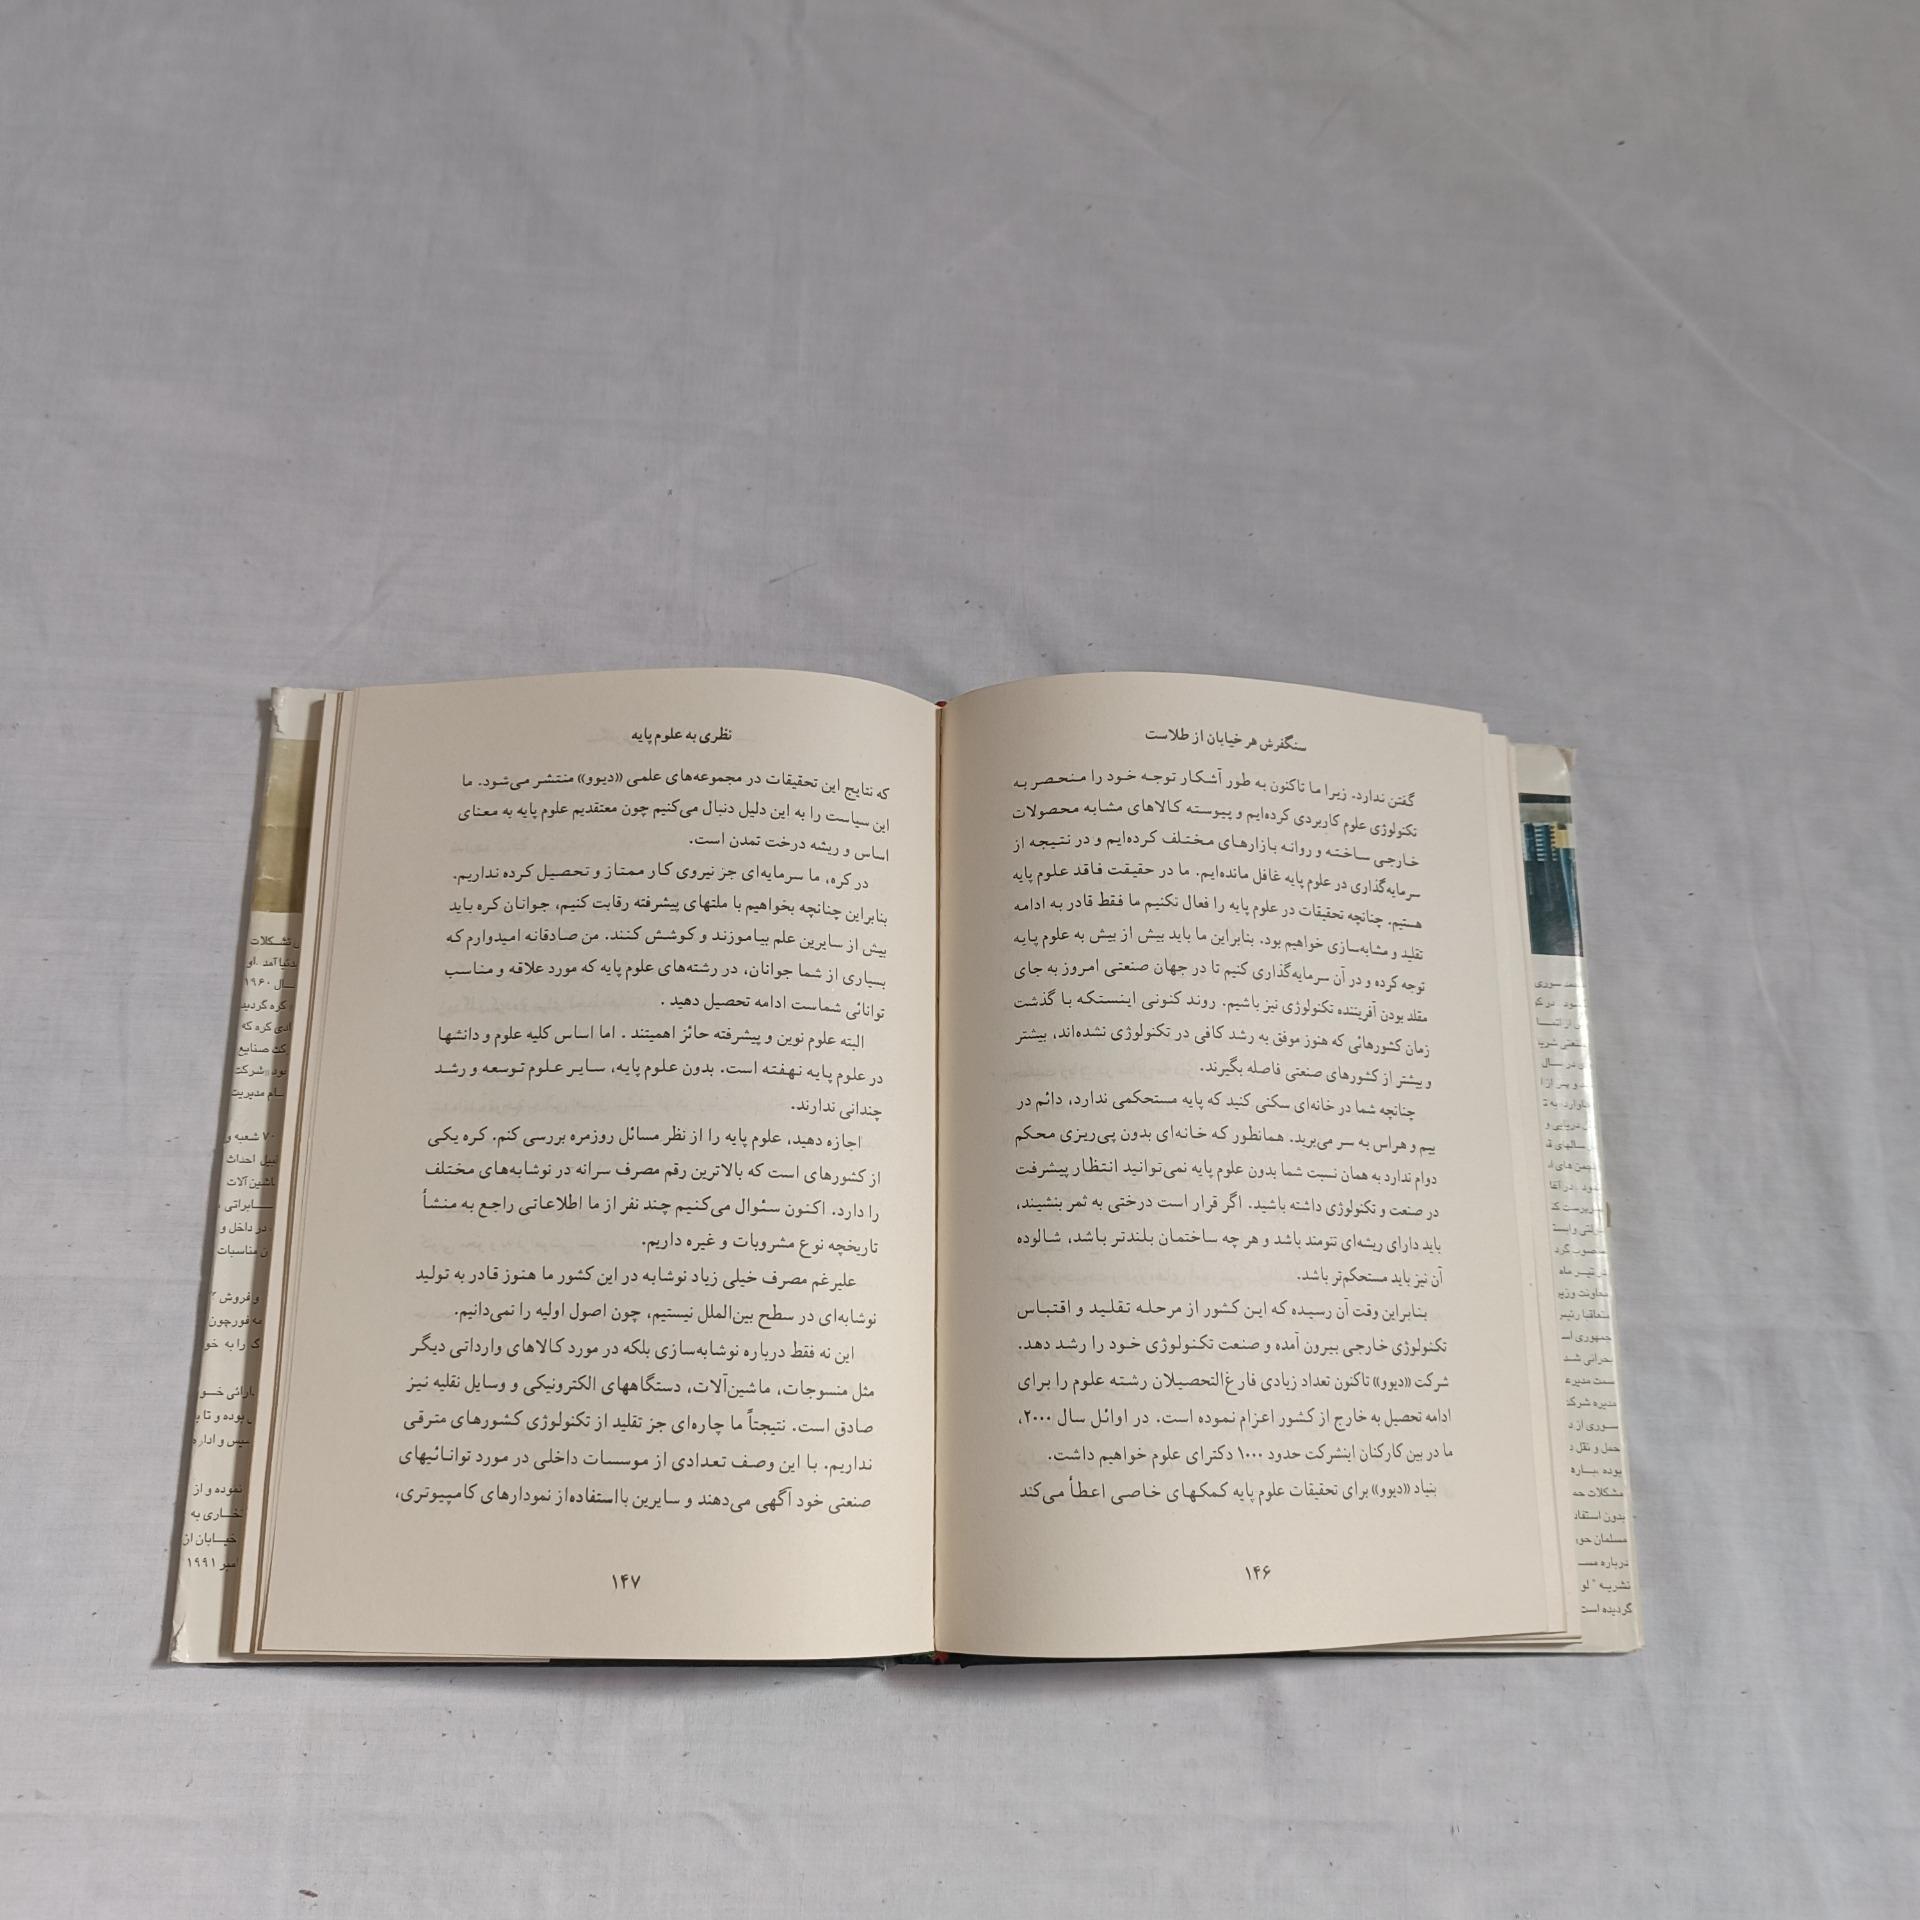 سنگفرش هر خیابان از طلاست
گفتن ندارد. زیرا ما تاکنون به طور آشکار توجه خود را منحصر به
تکنولوژی علوم کاربردی کرده‌ایم و پیوسته کالاهای مشابه محصولات
خارجی ساخته و روانه بازارهای مختلف کرده‌ایم و در نتیجه از
سرمایه‌گذاری در علوم پایه غافل مانده‌ایم. ما در حقیقت فاقد علوم پایه
هستیم. چنانچه تحقیقات در علوم پایه را فعال نکنیم ما فقط قادر به ادامه
تقلید و مشابه‌سازی خواهیم بود. بنابراین ما باید بیش از بیش به علوم پایه
توجه کرده و در آن سرمایه‌گذاری کنیم تا در جهان صنعتی امروز به جای
مقلد بودن آفریننده تکنولوژی نیز باشیم. روند کنونی اینستکه با گذشت
زمان کشورهائی که هنوز موفق به رشد کافی در تکنولوژی نشده‌اند، بیشتر
و بیشتر از کشورهای صنعتی فاصله بگیرند.
چنانچه شما در خانه‌ای سکنی کنید که پایه مستحکمی ندارد، دائم در
بیم و هراس به سر می‌برید. همانطور که خانه‌ای بدون پی‌ریزی محکم
دوام ندارد به همان نسبت شما بدون علوم پایه نمی‌توانید انتظار پیشرفت
در صنعت و تکنولوژی داشته باشید. اگر قرار است درختی به ثمر بنشیند،
باید دارای ریشه‌ای تنومند باشد و هر چه ساختمان بلندتر باشد، شالوده
آن نیز باید مستحکم‌تر باشد.
بنابراین وقت آن رسیده که این کشور از مرحله تقلید و اقتباس
تکنولوژی خارجی بیرون آمده و صنعت تکنولوژی خود را رشد دهد.
شرکت «دیوو» تاکنون تعداد زیادی فارغ‌التحصیلان رشته علوم را برای
ادامه تحصیل به خارج از کشور اعزام نموده است. در اوائل سال ۲۰۰۰،
ما در بین کارکنان اینشرکت حدود ۱۰۰۰ دکترای علوم خواهیم داشت.
بنیاد «دیوو» برای تحقیقات علوم پایه کمکهای خاصی اعطأ می‌کند
۱۴۶
نظری به علوم پایه
که نتایج این تحقیقات در مجموعه‌های علمی «دیوو» منتشر می‌شود. ما
این سیاست را به این دلیل دنبال می‌کنیم چون معتقدیم علوم پایه به معنای
اساس و ریشه درخت تمدن است.
در کره، ما سرمایه‌ای جز نیروی کار ممتاز و تحصیل کرده نداریم.
بنابراین چنانچه بخواهیم با ملتهای پیشرفته رقابت کنیم، جوانان کره باید
بیش از سایرین علم بیاموزند و کوشش کنند. من صادقانه امیدوارم که
بسیاری از شما جوانان، در رشته‌های علوم پایه که مورد علاقه و مناسب
توانائی شماست ادامه تحصیل دهید .
البته علوم نوین و پیشرفته حائز اهمیتند . اما اساس کلیه علوم و دانشها
در علوم پایه نهفته است. بدون علوم پایه، سایر علوم توسعه و رشد
چندانی ندارند.
اجازه دهید، علوم پایه را از نظر مسائل روزمره بررسی کنم. کره یکی
از کشورهای است که بالاترین رقم مصرف سرانه در نوشابه‌های مختلف
را دارد. اکنون سئوال می‌کنیم چند نفر از ما اطلاعاتی راجع به منشأ
تاریخچه نوع مشروبات و غیره داریم.
علیرغم مصرف خیلی زیاد نوشابه در این کشور ما هنوز قادر به تولید
نوشابه‌ای در سطح بین‌الملل نیستیم، چون اصول اولیه را نمی‌دانیم.
این نه فقط درباره نوشابه‌سازی بلکه در مورد کالاهای وارداتی دیگر
مثل منسوجات، ماشین‌آلات، دستگاههای الکترونیکی و وسایل نقلیه نیز
صادق است. نتیجتاً ما چاره‌ای جز تقلید از تکنولوژی کشورهای مترقی
نداریم. با این وصف تعدادی از موسسات داخلی در مورد توانائیهای
صنعتی خود آگهی می‌دهند و سایرین بااستفاده‌از نمودارهای کامپیوتری،
۱۴۷